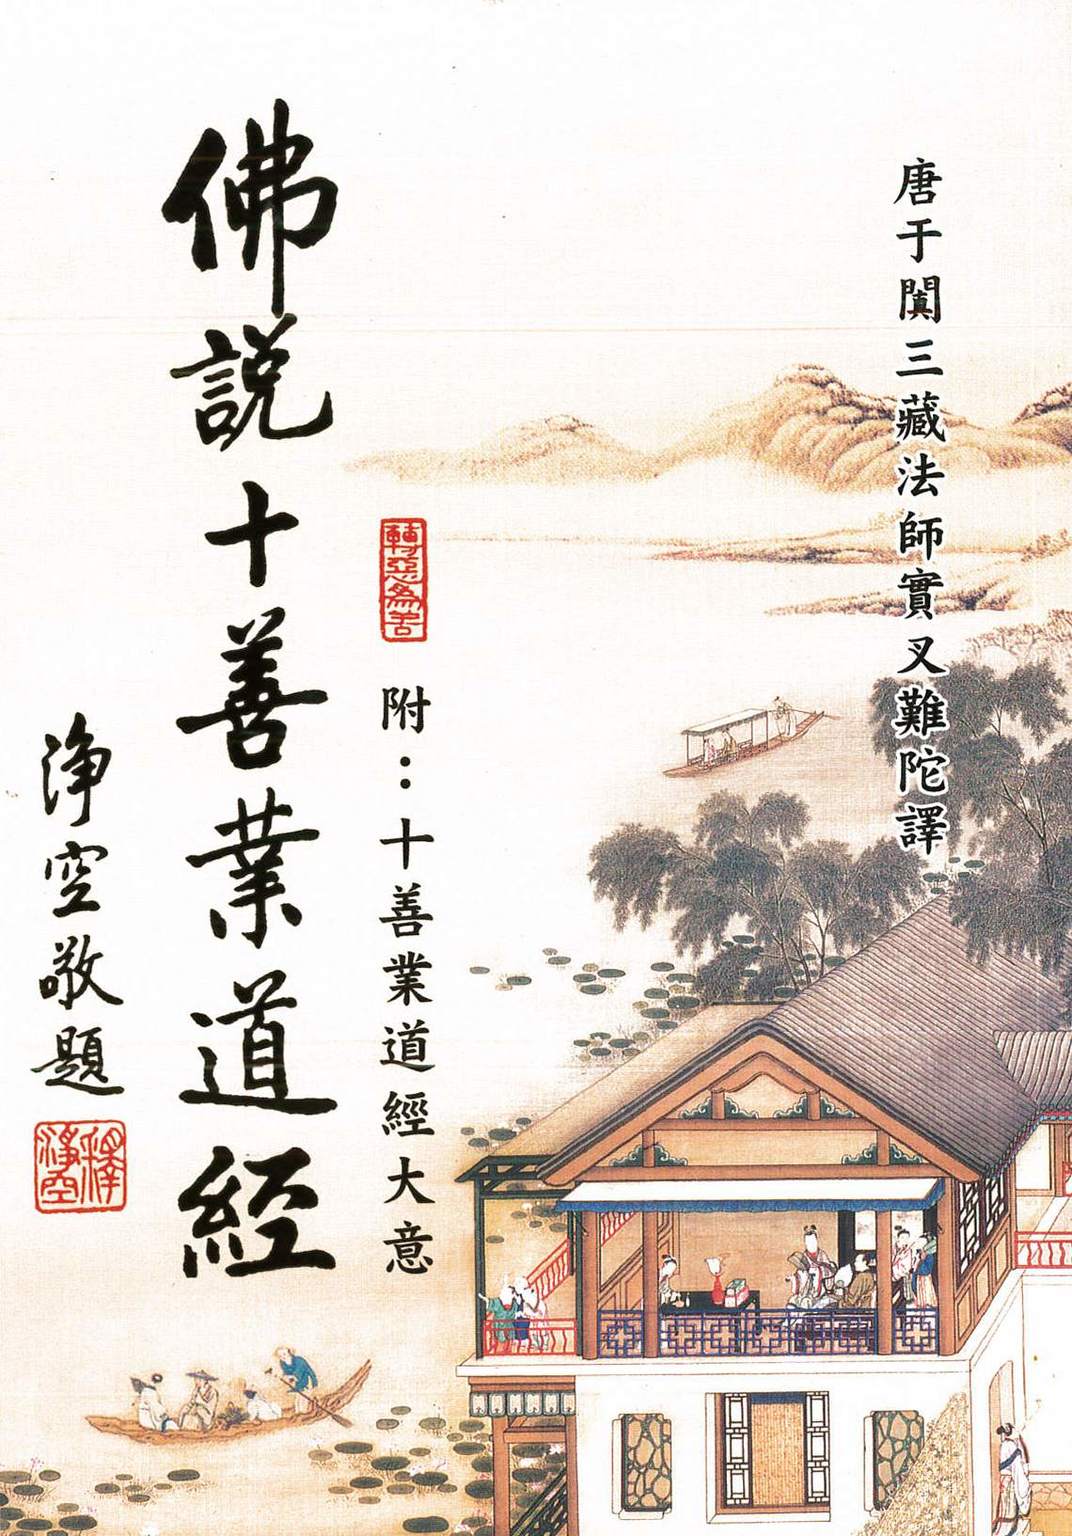 唐于闐三藏法師實叉難陀譯
轉惡為善
附：十善業道經大意
佛説十善業道經
淨空敬題
釋淨空